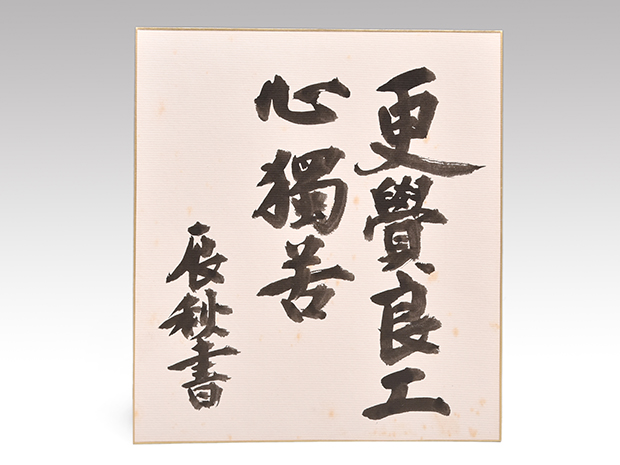 更覺良工
心獨苦
辰秋書